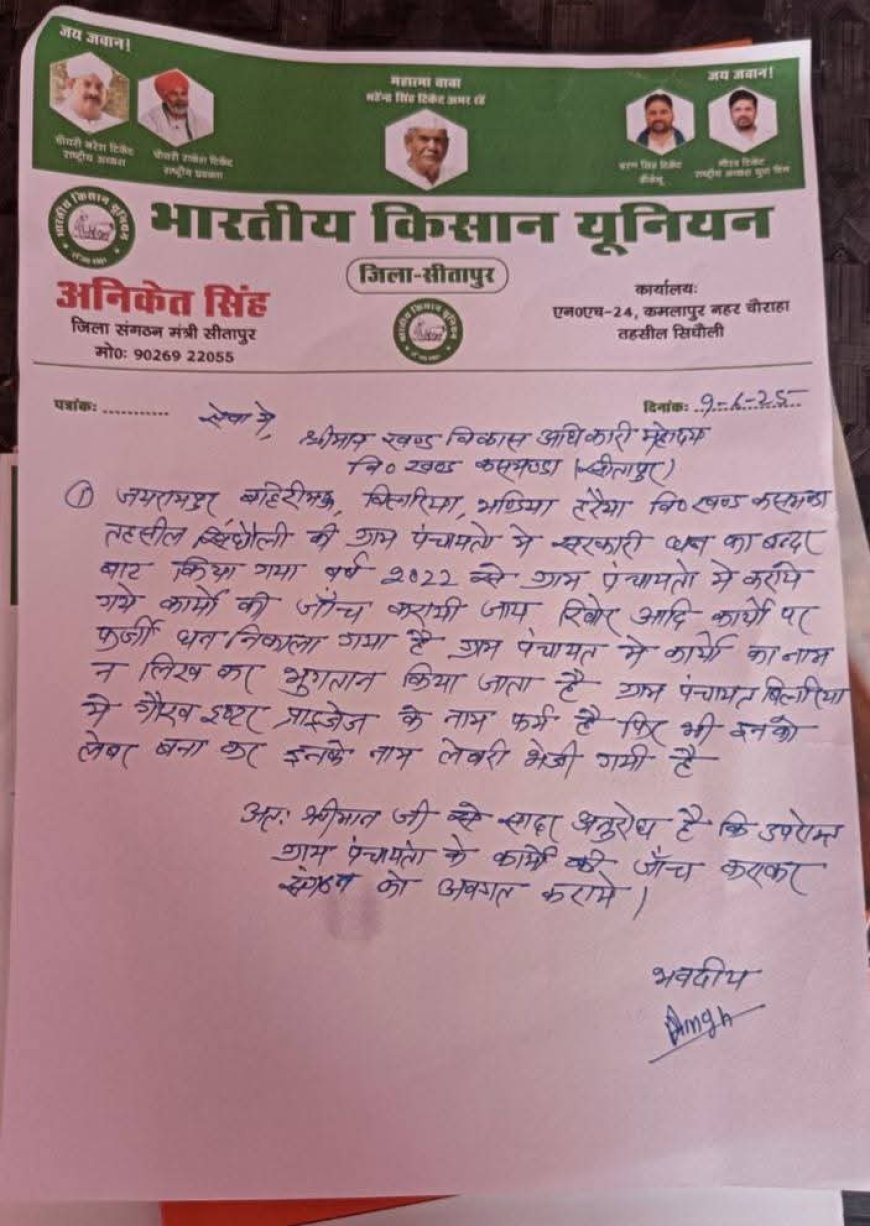 जय जवान!
जय जवान!
महात्मा बाबा
महेन्द्र सिंह टिकैत अमर रहें
चौधरी नरेश टिकैत
राष्ट्रीय अध्यक्ष
चौधरी राकेश टिकैत
राष्ट्रीय प्रवक्ता
चरण सिंह टिकैत
गौरव टिकैत
राष्ट्रीय अध्यक्ष युवा विंग
भारतीय किसान यूनियन
भारतीय किसान यूनियन
जिला-सीतापुर
अनिकेत सिंह
जिला संगठन मंत्री सीतापुर
मो0: 90269 22055
भारतीय किसान यूनियन
कार्यालय:
एन०एच-24, कमलापुर नहर चौराहा
तहसील सिधौली
पत्रांक: ............
दिनांक: 9-6-25
सेवा मे,
श्रीमान खण्ड विकास अधिकारी महोदय
वि० खण्ड कसमण्डा (सीतापुर)
① जयरामपुर बहिरीमऊ, बिलरिया, भण्डिया हरैया वि० खण्ड कसमण्डा
तहसील सिधौली की ग्राम पंचायतो मे सरकारी धन का बन्दर
बाट किया गया वर्ष 2022 से ग्राम पंचायतो मे कराये
गये कार्यो की जाँच करायी जाय रिबोर आदि कार्यो पर
फर्जी धन निकाला गया है ग्राम पंचायत मे कार्यो का नाम
न लिख कर भुगतान किया जाता है ग्राम पंचायत बिलरिया
मे गौरव इण्टर प्राइजेज के नाम फर्म है फिर भी इनको
लेबर बना कर इनके नाम लेबरी भेजी गयी है
अत: श्रीमान जी से सादर अनुरोध है कि उपरोक्त
ग्राम पंचायतो के कार्यो की जाँच कराकर
संगठन को अवगत कराये।
भवदीय